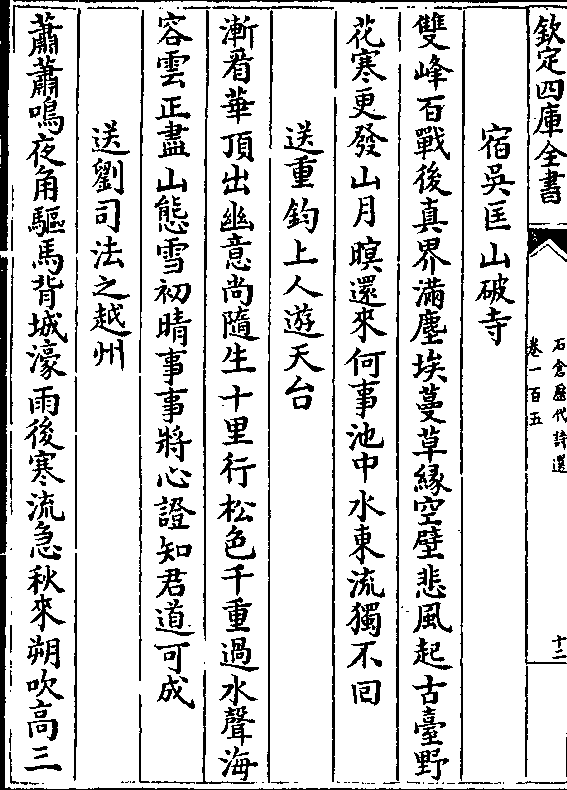 欽定四庫全書
石倉歷代詩選
卷一百五
十二
宿吳匡山破寺
雙峰百戰後真界滿塵埃蔓草緣空壁悲風起古臺野
花寒更發山月暝還來何事池中水東流獨不回
送重鈞上人遊天台
漸看華頂出幽意尚隨生十里行松色千重過水聲海
容雲正盡山態雪初晴事事將心證知君道可成
送劉司法之越州
蕭蕭鳴夜角驅馬背城濠雨後寒流急秋來朔吹高三